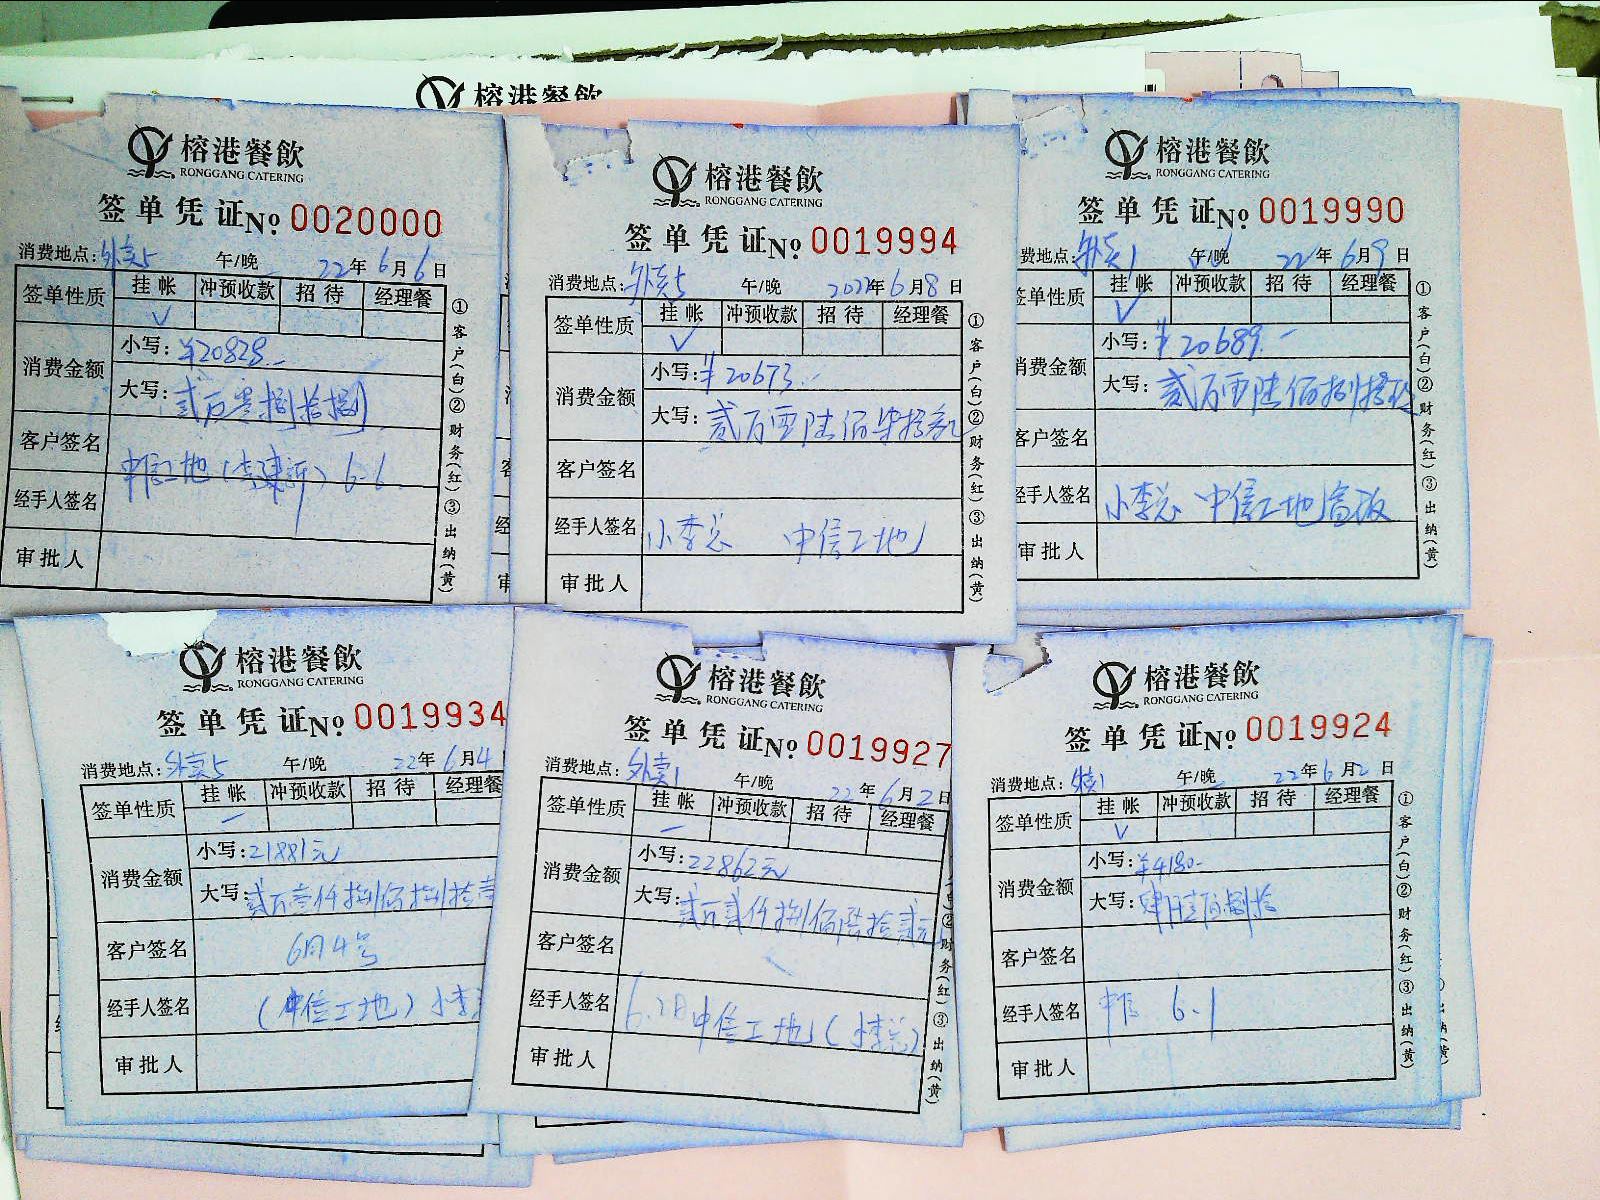 榕港餐飲
榕港餐飲
RONGGANG CATERING
签单凭证No 0020000
消费地点:外卖5 午/晚 22年6月6日
签单性质 挂帐 冲预收款 招待 经理餐
✓
消费金额 小写:¥20828.-
大写:贰万零捌拾捌
客户签名
中信工地( 建 )6-6
经手人签名
审批人
①客户(白)②财务(红)③出纳(黄)
榕港餐飲
RONGGANG CATERING
签单凭证No 0019994
消费地点:外卖5 午/晚 2022年6月8日
签单性质 挂帐 冲预收款 招待 经理餐
✓
消费金额 小写:¥20673.-
大写:贰万零陆佰柒拾叁元
客户签名
经手人签名 小李总 中信工地
审批人
①客户(白)②财务(红)③出纳(黄)
榕港餐飲
RONGGANG CATERING
签单凭证No 0019990
费地点:外卖1 午/晚 22年6月9日
签单性质 挂帐 冲预收款 招待 经理餐
✓
消费金额 小写:¥20689.-
大写:贰万零陆佰捌拾玖
客户签名
经手人签名 小李总 中信工地
审批人
①客户(白)②财务(红)③出纳(黄)
榕港餐飲
RONGGANG CATERING
签单凭证No 0019934
消费地点:外卖5 午/晚 22年6月4
签单性质 挂帐 冲预收款 招待 经理餐
消费金额 小写:21881元
大写:贰万壹仟捌佰捌拾壹
客户签名 6月4号
经手人签名 (中信工地)小李
审批人
榕港餐飲
RONGGANG CATERING
签单凭证No 0019927
消费地点:外卖1 午/晚 22年6月2日
签单性质 挂帐 冲预收款 招待 经理餐
消费金额 小写:22862元
大写:贰万贰仟捌佰陆拾贰元
客户签名
经手人签名 6.2日中信工地(小李总)
审批人
②财务(红)③出纳(黄)
榕港餐飲
RONGGANG CATERING
签单凭证No 0019924
消费地点:外卖1 午/晚 22年6月2日
签单性质 挂帐 冲预收款 招待 经理餐
✓
消费金额 小写:¥4180-
大写:肆仟壹佰捌拾
客户签名
经手人签名 中信 6.1
审批人
①客户(白)②财务(红)③出纳(黄)